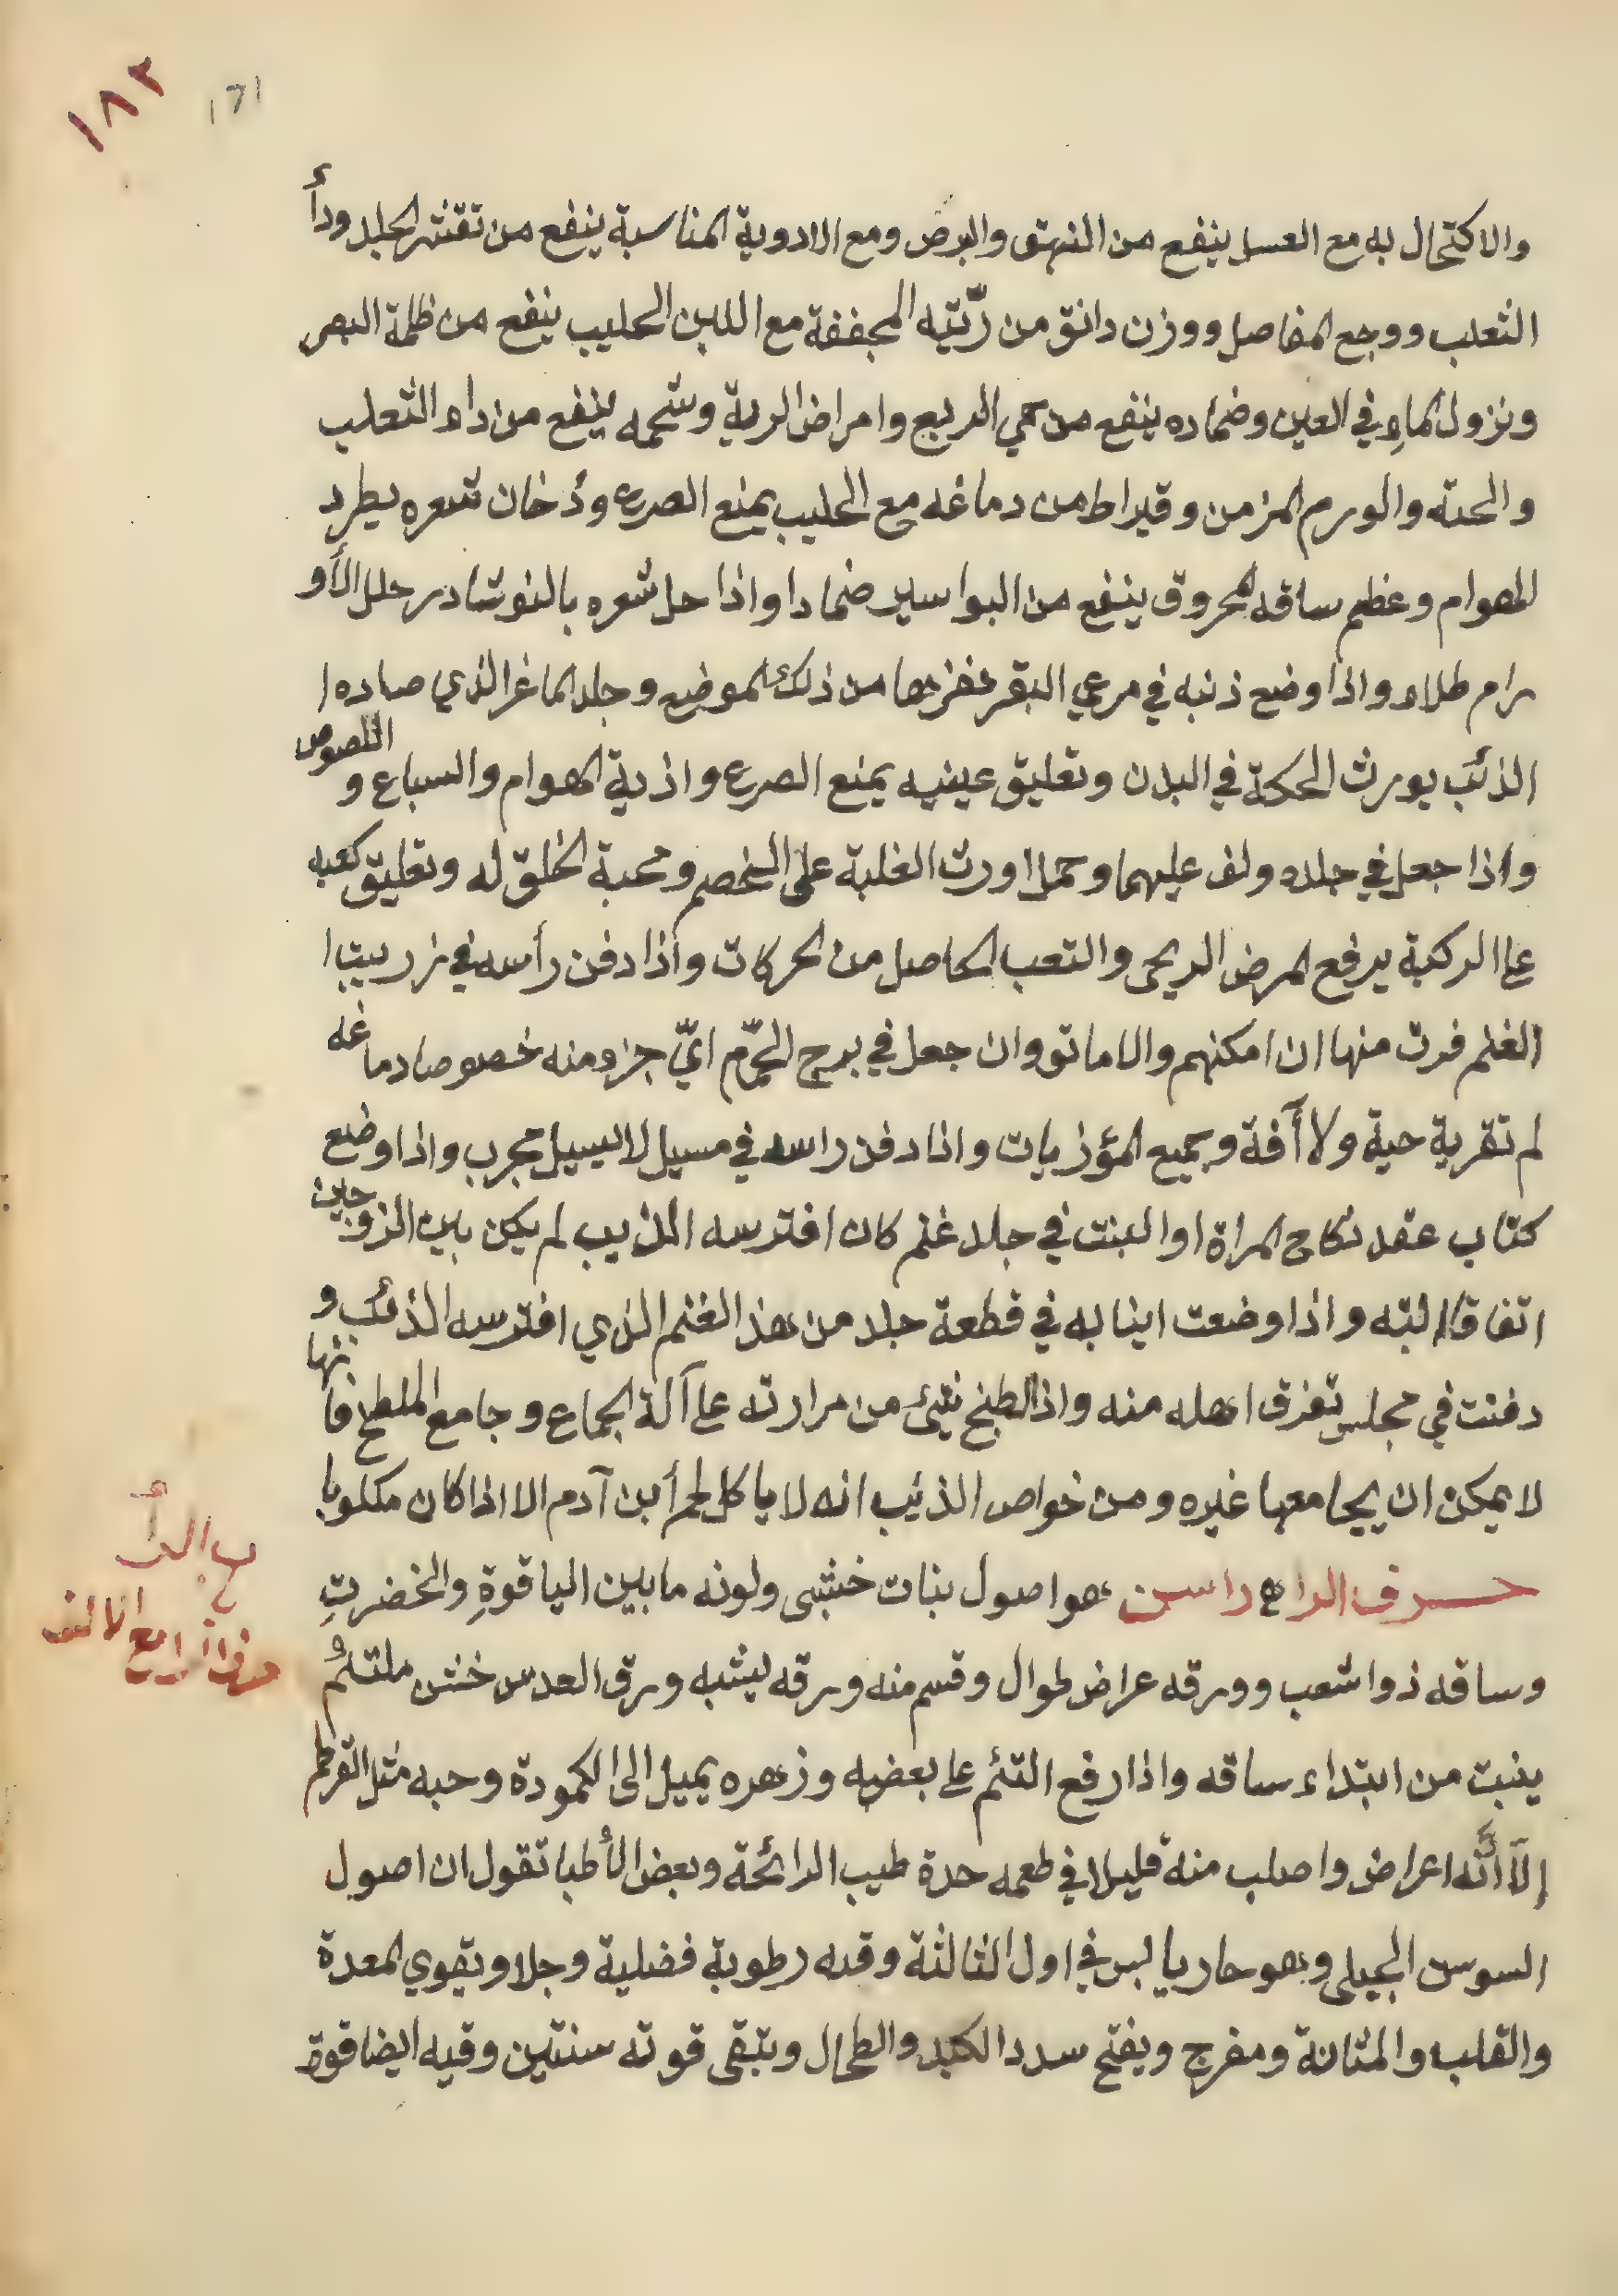 ١٨٢
171
والاكتحال به مع العسل ينفع من البهق والبرص ومع الادوية المناسبة ينفع من تقشر الجلد ودأ
الثعلب ووجع المفاصل ووزن دانق من رّيّته المجففة مع اللبن الحليب ينفع من ظلمة البصر
ونزول الماءِ في العين وضماده ينفع من حمي الربع وامراض الرية وشحمه ينفع من داء الثعلب
والحية والورم المزمن وقيراط من دماغه مع الحليب يمنع الصرع ودُخان شعره يطرد
الهوام وعظم ساقه المحروق ينفع من البواسير ضمادا واذا حل شعره بالنوشادر حلل الأو
رام طلاء واذا وضع ذنبه في مرعي البقر نفرها من ذلك الموضع وجلد الماعز الذي صاده ا
الذئب يورث الحكة في البدن وتعليق عينيه يمنع الصرع واذية الهوام والسباع و اللصوص
واذا جعل في جلده ولف عليهما وحمل اورث الغلبة على الخصم ومحبة الخلق له وتعليق كعبه
على الركبة يرفع المرض الريحى والتعب الحاصل من الحركات واذا دفن رأسه في زريبة ا
الغلم فرت منها ان امكنهم والا ماتو وان جعل في برج الحّمام ايّ جزء منه خصوصا دماغه
لم تقربة حية ولا آفة وجميع المؤذيات واذا دفن راسه في مسيل لا يسيل مجرب واذا وضع
كتاب عقد نكاح المراة او البنت في جلد غنم كان افترسه الذيب لم يكن بين الزوجين
اتفاقا البته واذا وضعت اينابه في قطعة جلد من هذ الغنم الذي افترسه الذئب و
دفنت في مجلس تفرق اهله منه واذا لطخ شئ من مرارته على آلة الجماع وجامع الملطخ فانها
لا يمكن ان يجامعها غيره ومن خواص الذئيب انه لا ياكل لحم أبن آدم الا اذا كان مكلوبا
حرف الراء راسن هو اصول بنات خشبى ولونه ما بين الياقوةِ والخضرتِ
وساقه ذوا شعب وورقه عراض طوال وقسم منه ورقه يشبه ورق العدس خشن ملتئم
ينبت من ابتداء ساقه واذا رفع التئم على بعضه وزهره يميل الى الكمودة وحبه مثل القرطم
إلآ انَّه اعراض واصلب منه قليلا في طعمه حدة طيب الرائحة وبعض الأطبا تقول ان اصول
السوسن الجبلى وهو حار يابس في اول الثالثة وفيه رطوبة فضلية وجلا ويقوي المعدة
والقلب والمثانة ومفرج ويفتح سدد الكبد والطحال وتبقى قوته سنتين وفيه ايضا قوة